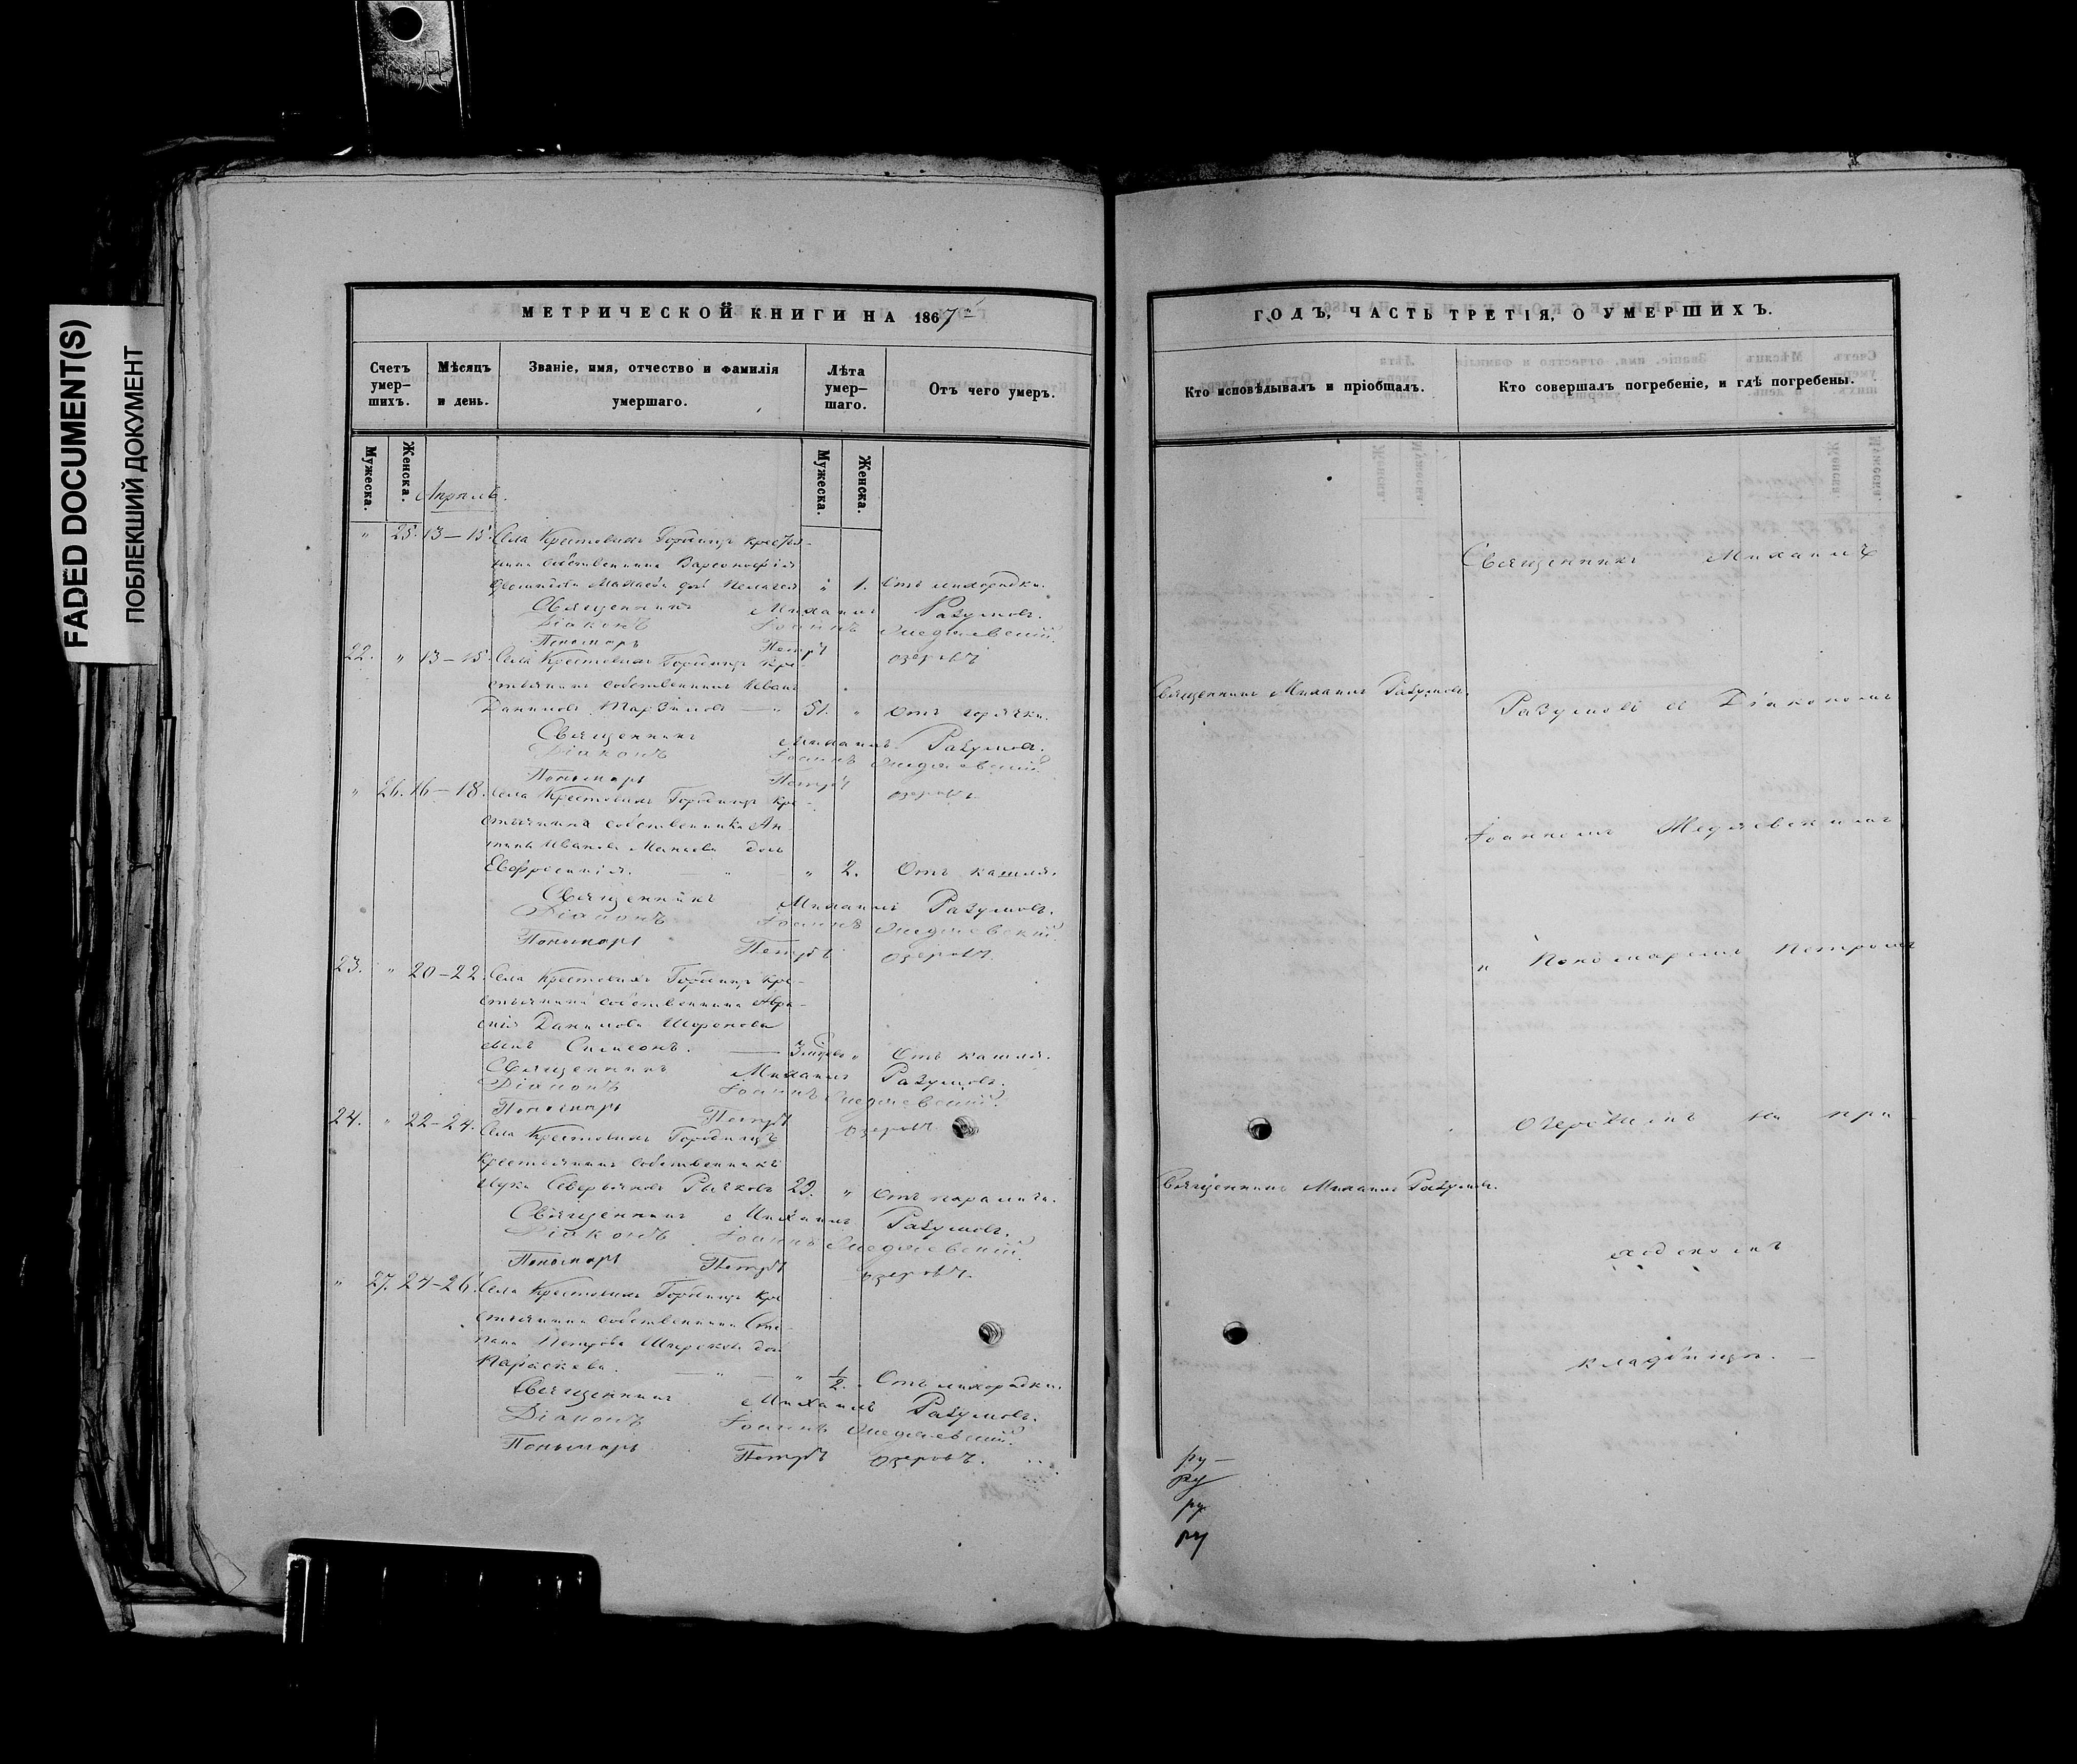 FADED DOCUMENT(S)
ПОБЛЕКШИЙ ДОКУМЕНТ
МЕТРИЧЕСКОЙ КНИГИ НА 1867й
Счетъ умер-шихъ.
Мѣсяцъ и день.
Званіе, имя, отчество и фамилія умершаго.
Лѣта умер-шаго.
Отъ чего умеръ.
Мужеска.
Женска.
Мужеска.
Женска.
Апрѣль.
" 25. 13–15. Села Крестовыхъ Городищъ крестья-
нина собственника Варсонофія
дочь Пелагея " 1. Отъ лихорадки.
Священникъ Михаилъ Разумовъ.
Діаконъ Іоаннъ Медяевскій.
Пономарь Петръ Озеровъ
22. " 13–15. Села Крестовыхъ Городищъ кре-
стьянинъ собственникъ Иванъ
Даниловъ 51. " Отъ горячки.
Священникъ Михаилъ Разумовъ.
Діаконъ Іоаннъ Медяевскій
Пономарь Петръ Озеровъ
" 26. 16–18. Села Крестовыхъ Городищъ кре-
стьянина собственника Ан-
Иванова дочь
Евфросинія. " " 2. Отъ кашля.
Священникъ Михаилъ Разумовъ.
Діаконъ Іоаннъ Медяевскій.
Пономарь Петръ Озеровъ.
23. " 20–22. Села Крестовыхъ Городищъ кре-
стьянина собственника
Данилова
сынъ Симеонъ. " Отъ кашля.
Священникъ Михаилъ Разумовъ.
Діаконъ Іоаннъ Медяевскій.
Пономарь Петръ Озеровъ
24. " 22–24. Села Крестовыхъ Городищъ
крестьянинъ собственникъ
Лука Северьяновъ Рычковъ 29. " Отъ паралича.
Священникъ Михаилъ Разумовъ.
Діаконъ Іоаннъ Медяевскій.
Пономарь Петръ Озеровъ.
" 27. 24–26. Села Крестовыхъ Городищъ кре-
стьянина собственника Сте-
пана Петрова дочь
Параскева. " " 1/2. Отъ лихорадки.
Священникъ Михаилъ Разумовъ.
Діаконъ Іоаннъ Медяевскій.
Пономарь Петръ Озеровъ.
ГОДЪ, ЧАСТЬ ТРЕТІЯ, О УМЕРШИХЪ.
Кто исповѣдывалъ и пріобщалъ.
Кто совершалъ погребеніе, и гдѣ погребены.
Священникъ Михаилъ
Священникъ Михаилъ Разумовъ.
Разумовъ съ Діакономъ
Іоанномъ Медяевскимъ
и Пономаремъ Петромъ
Озеровымъ на при-
Священникъ Михаилъ Разумовъ.
ходскомъ
кладбищѣ. –
ру –
ру
ру
ру